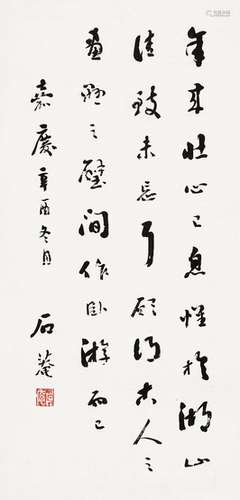 年来壮心已息惟于湖山
佳致未忘耳愿得古人之
画悬之壁间作卧游而已
嘉庆辛酉冬月
石庵